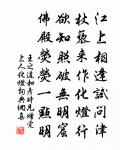 江上相逢試問津
杖藜來作化燈行
欲知照破無明窟
佛殿熒熒一點明
王之道和彥時兄贈覺
上人化燈詞典網集